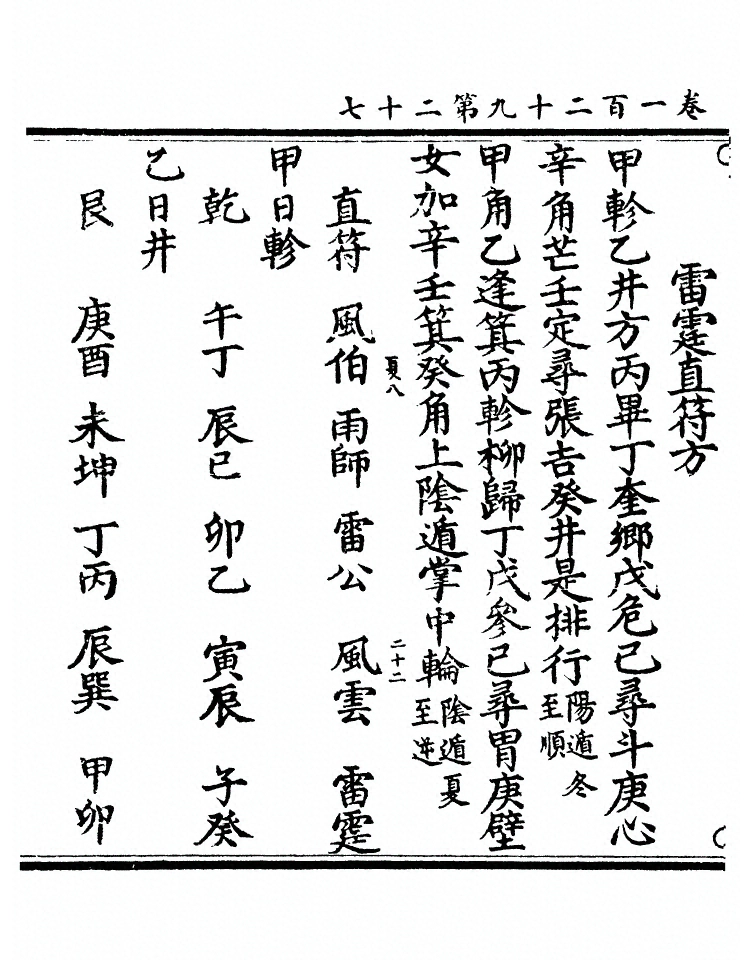 卷一百二十九第二十七
雷霆直符方
甲軫乙井方丙畢丁奎鄉戊危己尋斗庚心
辛角芒壬定尋張吉癸井是排行陽遁冬至順
甲角乙逢箕丙軫柳歸丁戊參己尋胃庚壁
女加辛壬箕癸角上陰遁掌中輪陰遁夏至逆
直符 風伯 雨師 雷公 風雲 雷霆
夏八
二十二
甲日軫
乾 午丁 辰巳 卯乙 寅辰 子癸
乙日井
艮 庚酉 未坤 丁丙 辰巽 甲卯